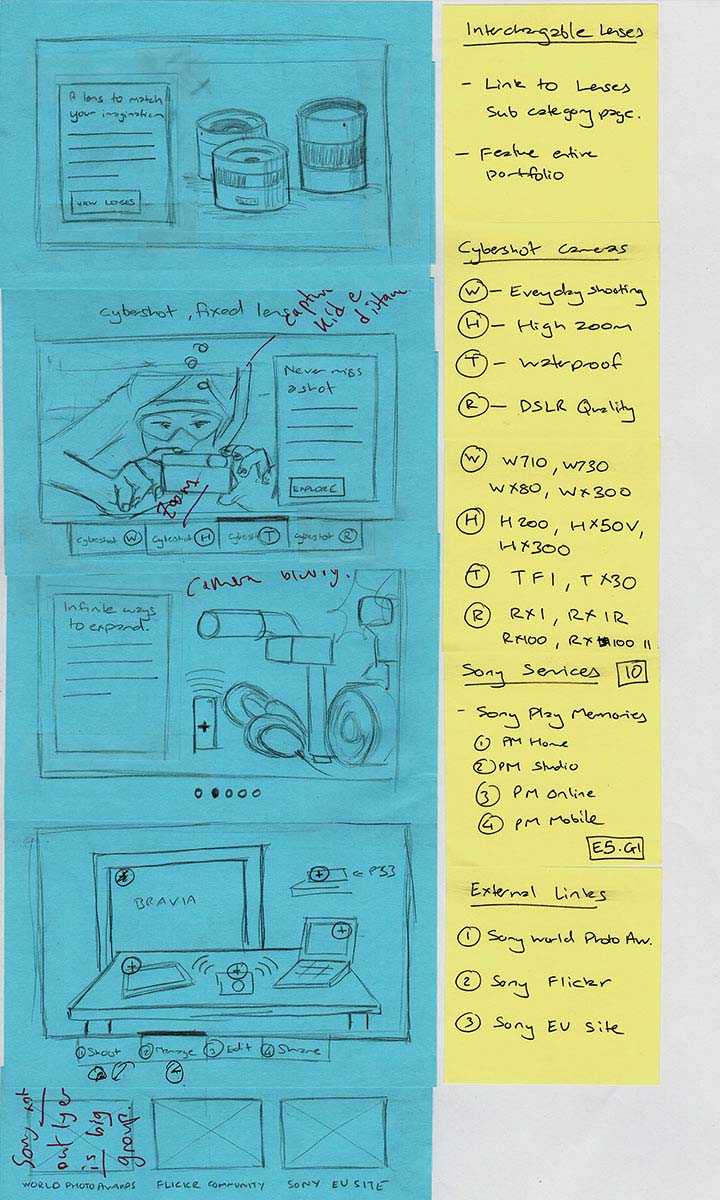 A lens to match
your imagination
VIEW LENSES
Interchangable lenses
- Link to Lenses
Sub category page.
- Feature entire
portfolio
cybershot, fixed lens
Capture
Never miss
a shot
EXPLORE
Zooms
cybershot W
cybershot H
cybershot T
cybershot R
Cybershot Cameras
W - Everyday shooting
H - High zoom
T - Waterproof
R - DSLR Quality
W W710, W730
WX80, WX300
H H200, HX50V,
HX300
T TF1, TX30
R RX1, RX1R
RX100, RX100 II
Camera blurry.
Infinite ways
to expand.
Sony Services 10
- Sony Play Memories
1 PM Home
2 PM Studio
3 PM Online
4 PM Mobile
E5.G1
BRAVIA
← PS3
1 Shoot
2 Manage
3 Edit
4 Share
External Links
1 Sony World Photo Aw.
2 Sony Flickr
3 Sony EU Site
Sony not
out lyer
is big
group.
WORLD PHOTO AWARDS
FLICKR COMMUNITY
SONY EU SITE